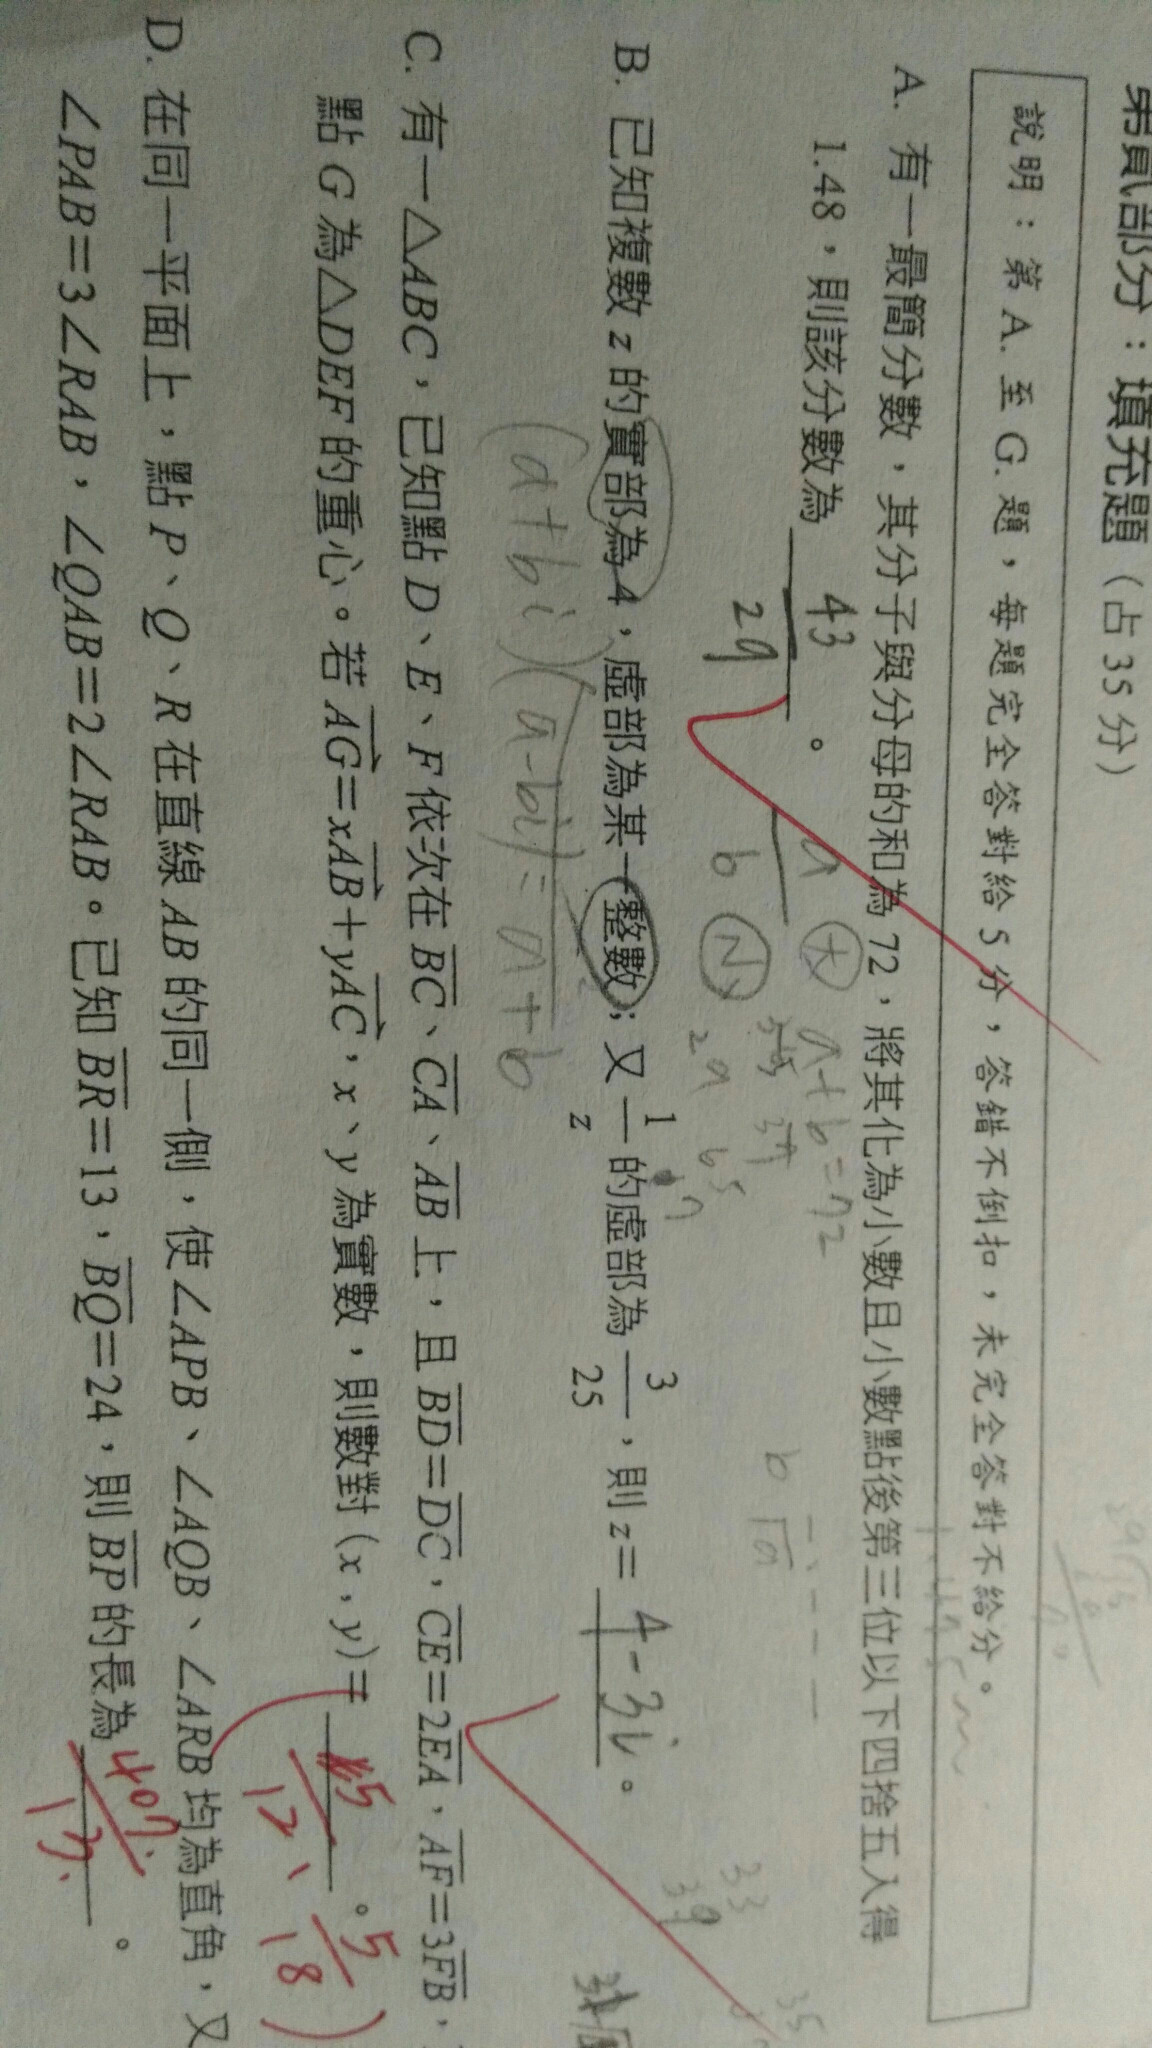 第貳部分：填充題（占 35 分）
說明：第 A. 至 G. 題，每題完全答對給 5 分，答錯不倒扣，未完全答對不給分。
A. 有一最簡分數，其分子與分母的和為 72，將其化為小數且小數點後第三位以下四捨五入得
1.48，則該分數為 43/29 。
a/b
大
a+b=72
B. 已知複數 z 的實部為 4，虛部為某一整數；又 1/z 的虛部為 3/25，則 z= 4-3i 。
(a+bi)(a-bi)=
C. 有一△ABC，已知點 D、E、F 依次在 BC、CA、AB 上，且 BD=DC，CE=2EA，AF=3FB，
點 G 為△DEF 的重心。若 AG=xAB+yAC，x、y 為實數，則數對 (x , y)= 。
5/12、5/18)
D. 在同一平面上，點 P、Q、R 在直線 AB 的同一側，使∠APB、∠AQB、∠ARB 均為直角，又
∠PAB=3∠RAB，∠QAB=2∠RAB。已知 BR=13，BQ=24，則 BP 的長為 407/13 。